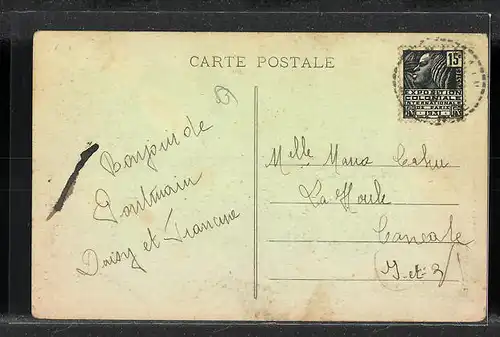 CARTE POSTALE
15c
POSTES
EXPOSITION
COLONIALE
INTERNATIONALE
DE PARIS
1931
Bonjour de
Pontmain
Daisy et Francine
Melle Maria Cahu
La Houle
Cancale
I-et-V